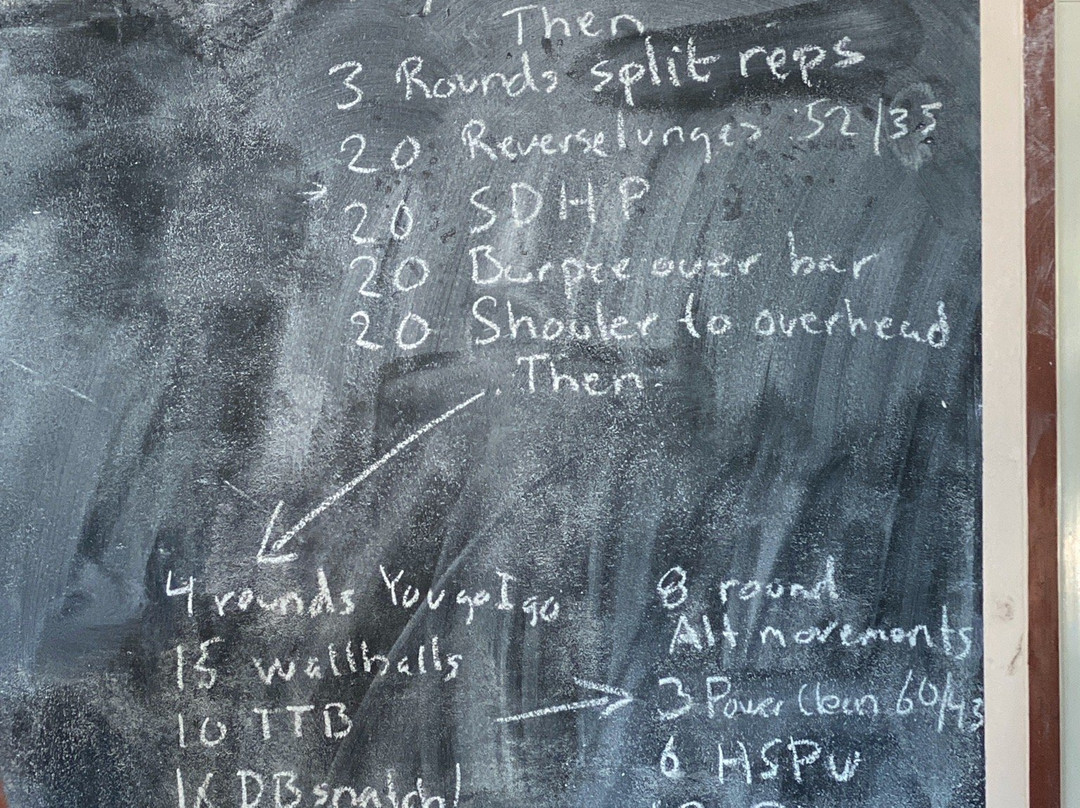 Then
3 Rounds split reps
20 Reverse lunges 52/35
20 SDHP
20 Burpee over bar
20 Shouler to overhead
Then
4 rounds You go I go
15 wallballs
10 TTB
DB snatch
8 round
Alt movements
3 Power Clean 60/43
6 HSPU